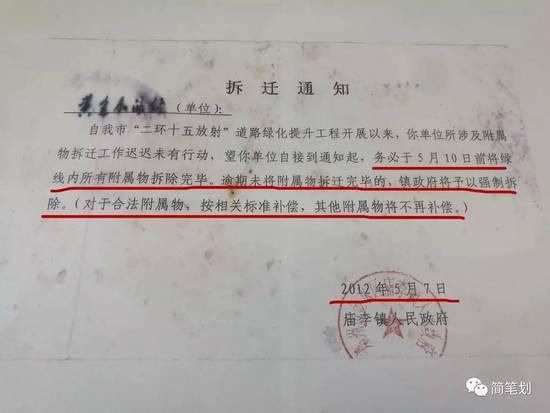 拆迁通知
(单位):
自我市“二环十五放射”道路绿化提升工程开展以来，你单位所涉及附属
物拆迁工作迟迟未有行动，望你单位自接到通知起，务必于5月10日前将绿
线内所有附属物拆除完毕。逾期未将附属物拆迁完毕的，镇政府将予以强制拆
除。(对于合法附属物、按相关标准补偿，其他附属物将不再补偿。)
2012年5月7日
庙李镇人民政府
简笔划